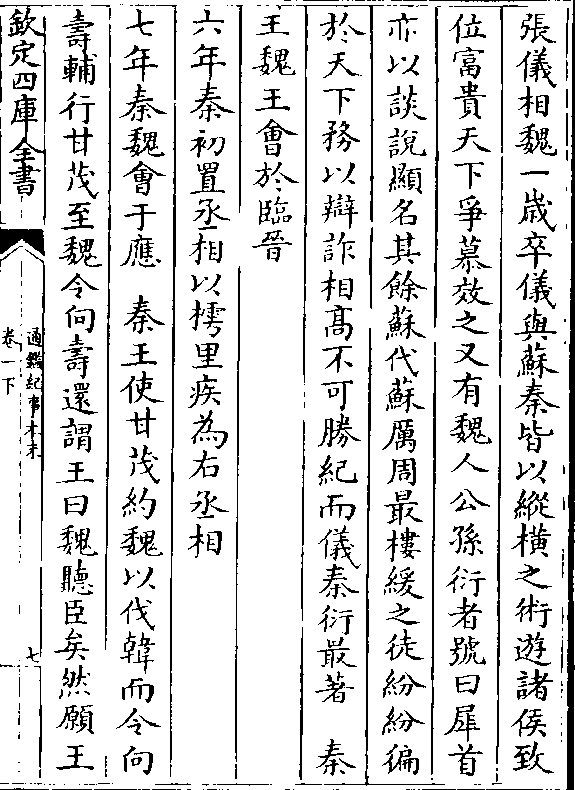 張儀相魏一歳卒儀與蘇秦皆以縱橫之術遊諸侯致
位富貴天下爭慕效之又有魏人公孫衍者號曰犀首
亦以談說顯名其餘蘇代蘇厲周最樓緩之徒紛紛徧
於天下務以辯詐相髙不可勝紀而儀秦衍最著　秦
王魏王會於臨晉
六年秦初置丞相以樗里疾為右丞相
七年秦魏會于應　秦王使甘茂約魏以伐韓而令向
壽輔行甘茂至魏令向壽還謂王曰魏聽臣矣然願王
欽定四庫全書
通鑑紀事本末
卷一下
七